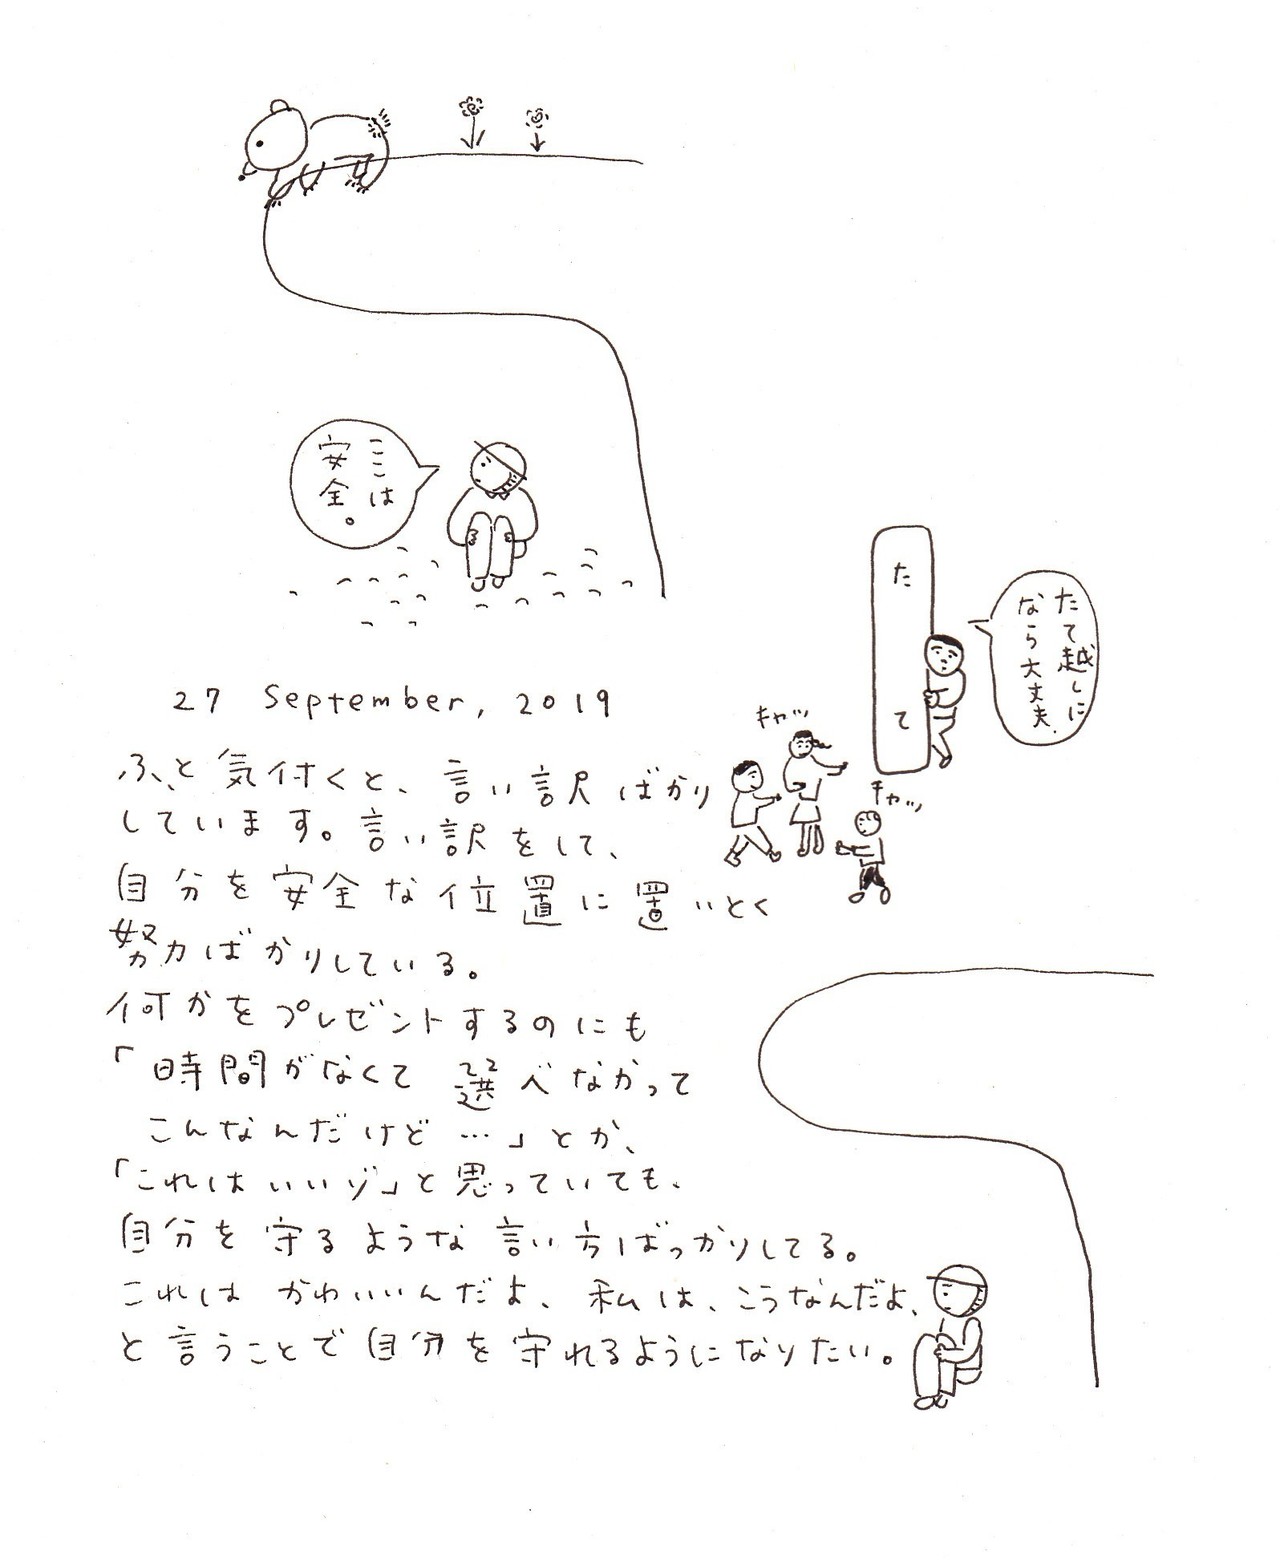 ここは
安全。
たて
たて越しに
なら大丈夫.
キャッ
キャッ
27 September, 2019
ふと気付くと、言い訳ばかり
しています。言い訳をして、
自分を安全な位置に置いとく
努力ばかりしている。
何かをプレゼントするのにも
「時間がなくて 選べなかって
こんなんだけど…」とか、
「これはいいゾ」と思っていても、
自分を守るような言い方ばっかりしてる。
これは かわいいんだよ、私は、こうなんだよ、
と言うことで自分を守れるようになりたい。